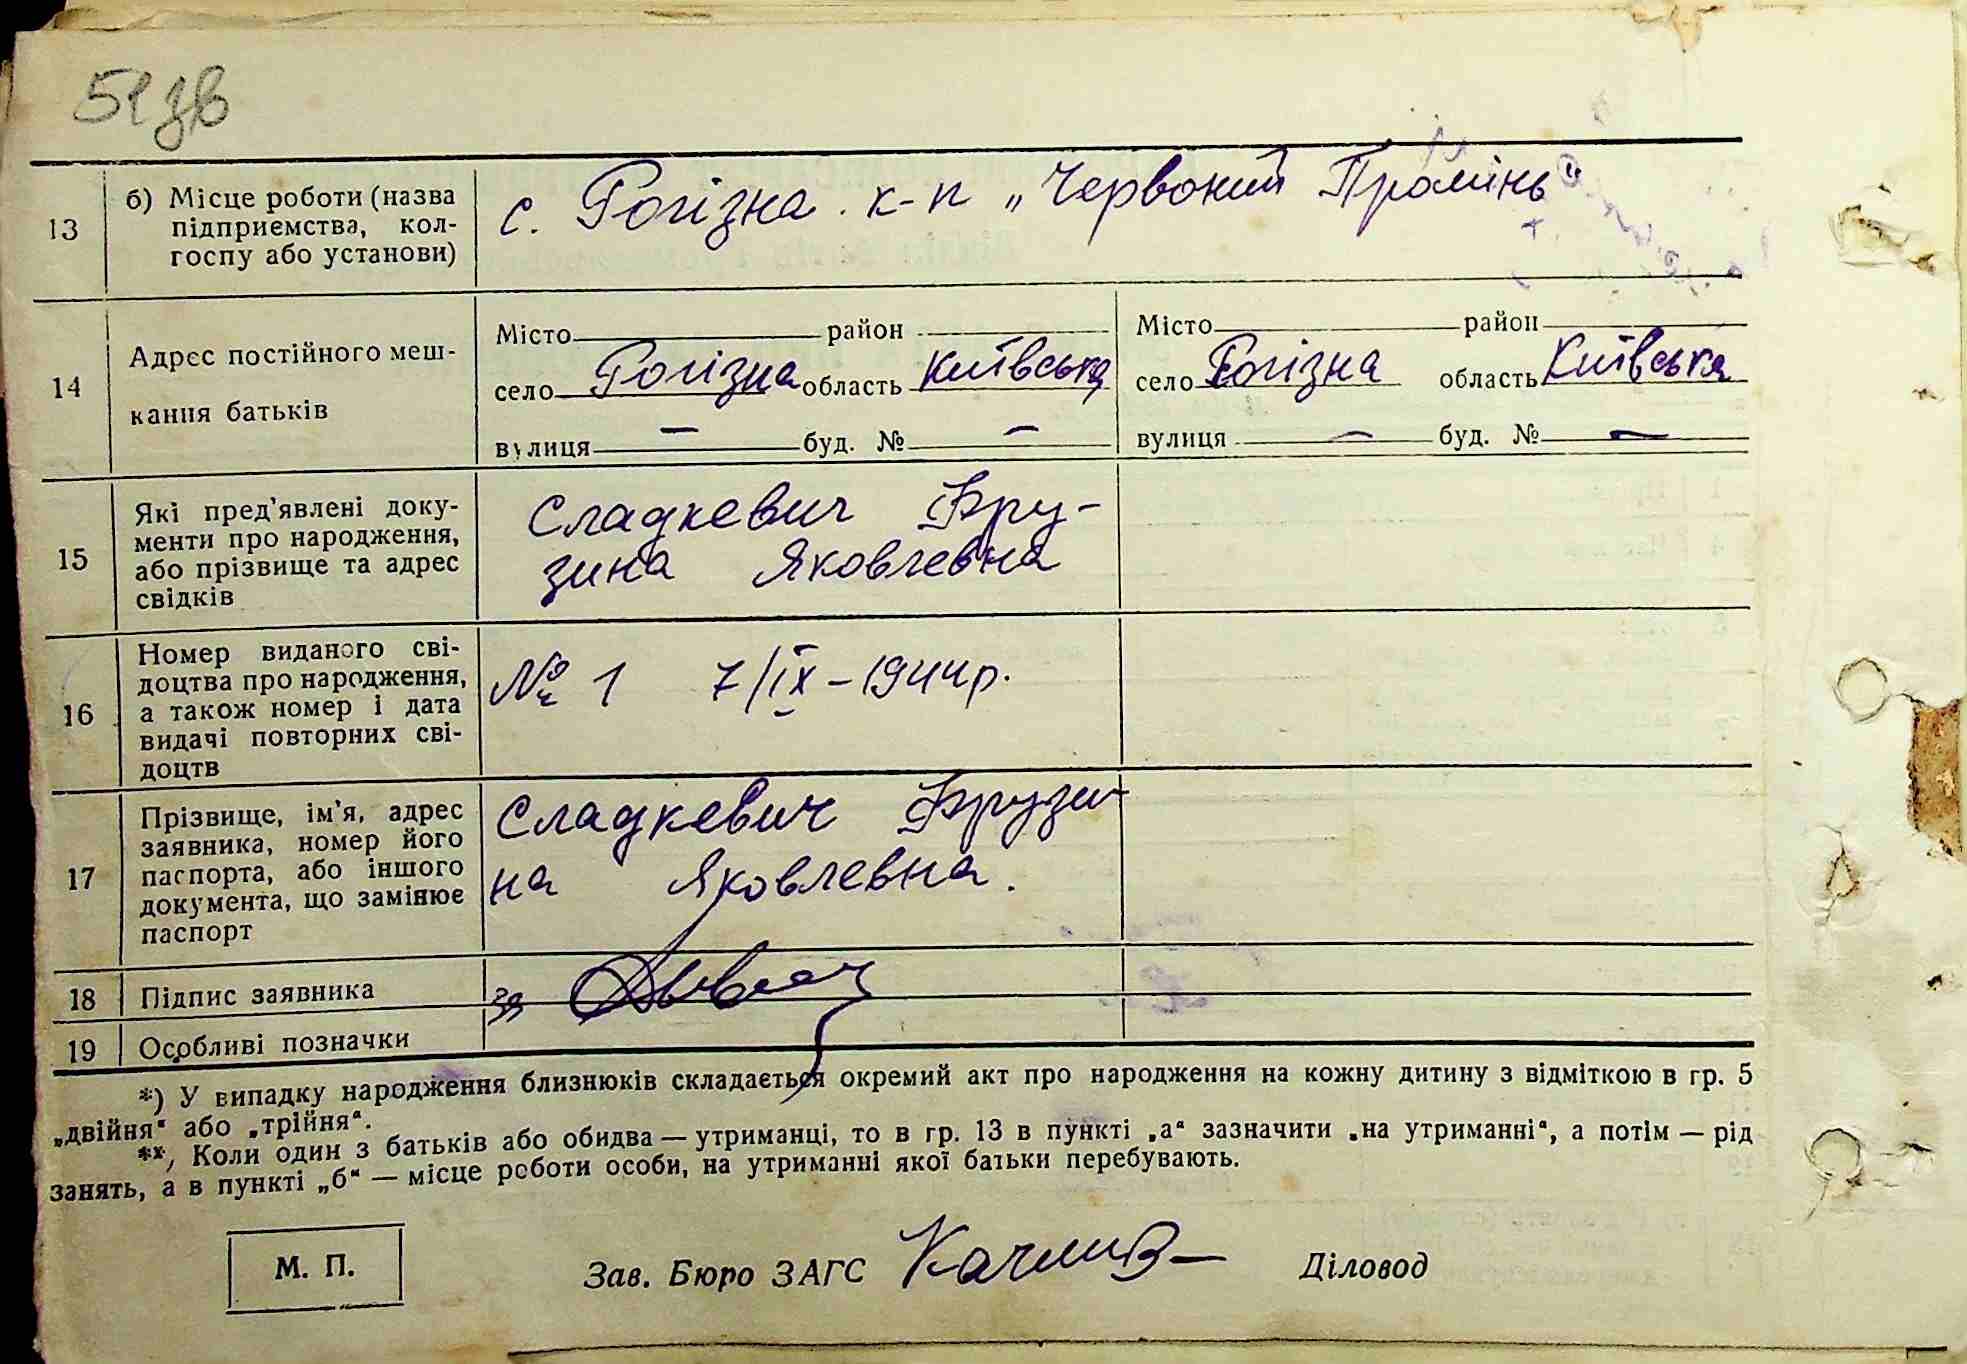 51зв
13 б) Місце роботи (назва підприємства, кол-госпу або установи) с. Рогізна. к-п „Червоний Промінь"
14 Адрес постійного меш-кання батьків
Місто район Місто район
село Рогізна область Київська село Рогізна область Київська
вулиця — буд. № — вулиця — буд. № —
15 Які пред'явлені доку-
менти про народження,
або прізвище та адрес
свідків
Сладкевич Фру-
зина Яковлевна
16 Номер виданого сві-
доцтва про народження,
а також номер і дата
видачі повторних сві-
доцтв
№ 1 7/ІХ – 1944р.
17 Прізвище, ім'я, адрес
заявника, номер його
паспорта, або іншого
документа, що замінює
паспорт
Сладкевич Фрузи-
на Яковлевна.
18 Підпис заявника за
19 Особливі позначки
*) У випадку народження близнюків складається окремий акт про народження на кожну дитину з відміткою в гр. 5
„двійня" або „трійня".
**) Коли один з батьків або обидва — утриманці, то в гр. 13 в пункті „а" зазначити „на утриманні", а потім — рід
занять, а в пункті „б" — місце роботи особи, на утриманні якої батьки перебувають.
М. П.
Зав. Бюро ЗАГС Діловод